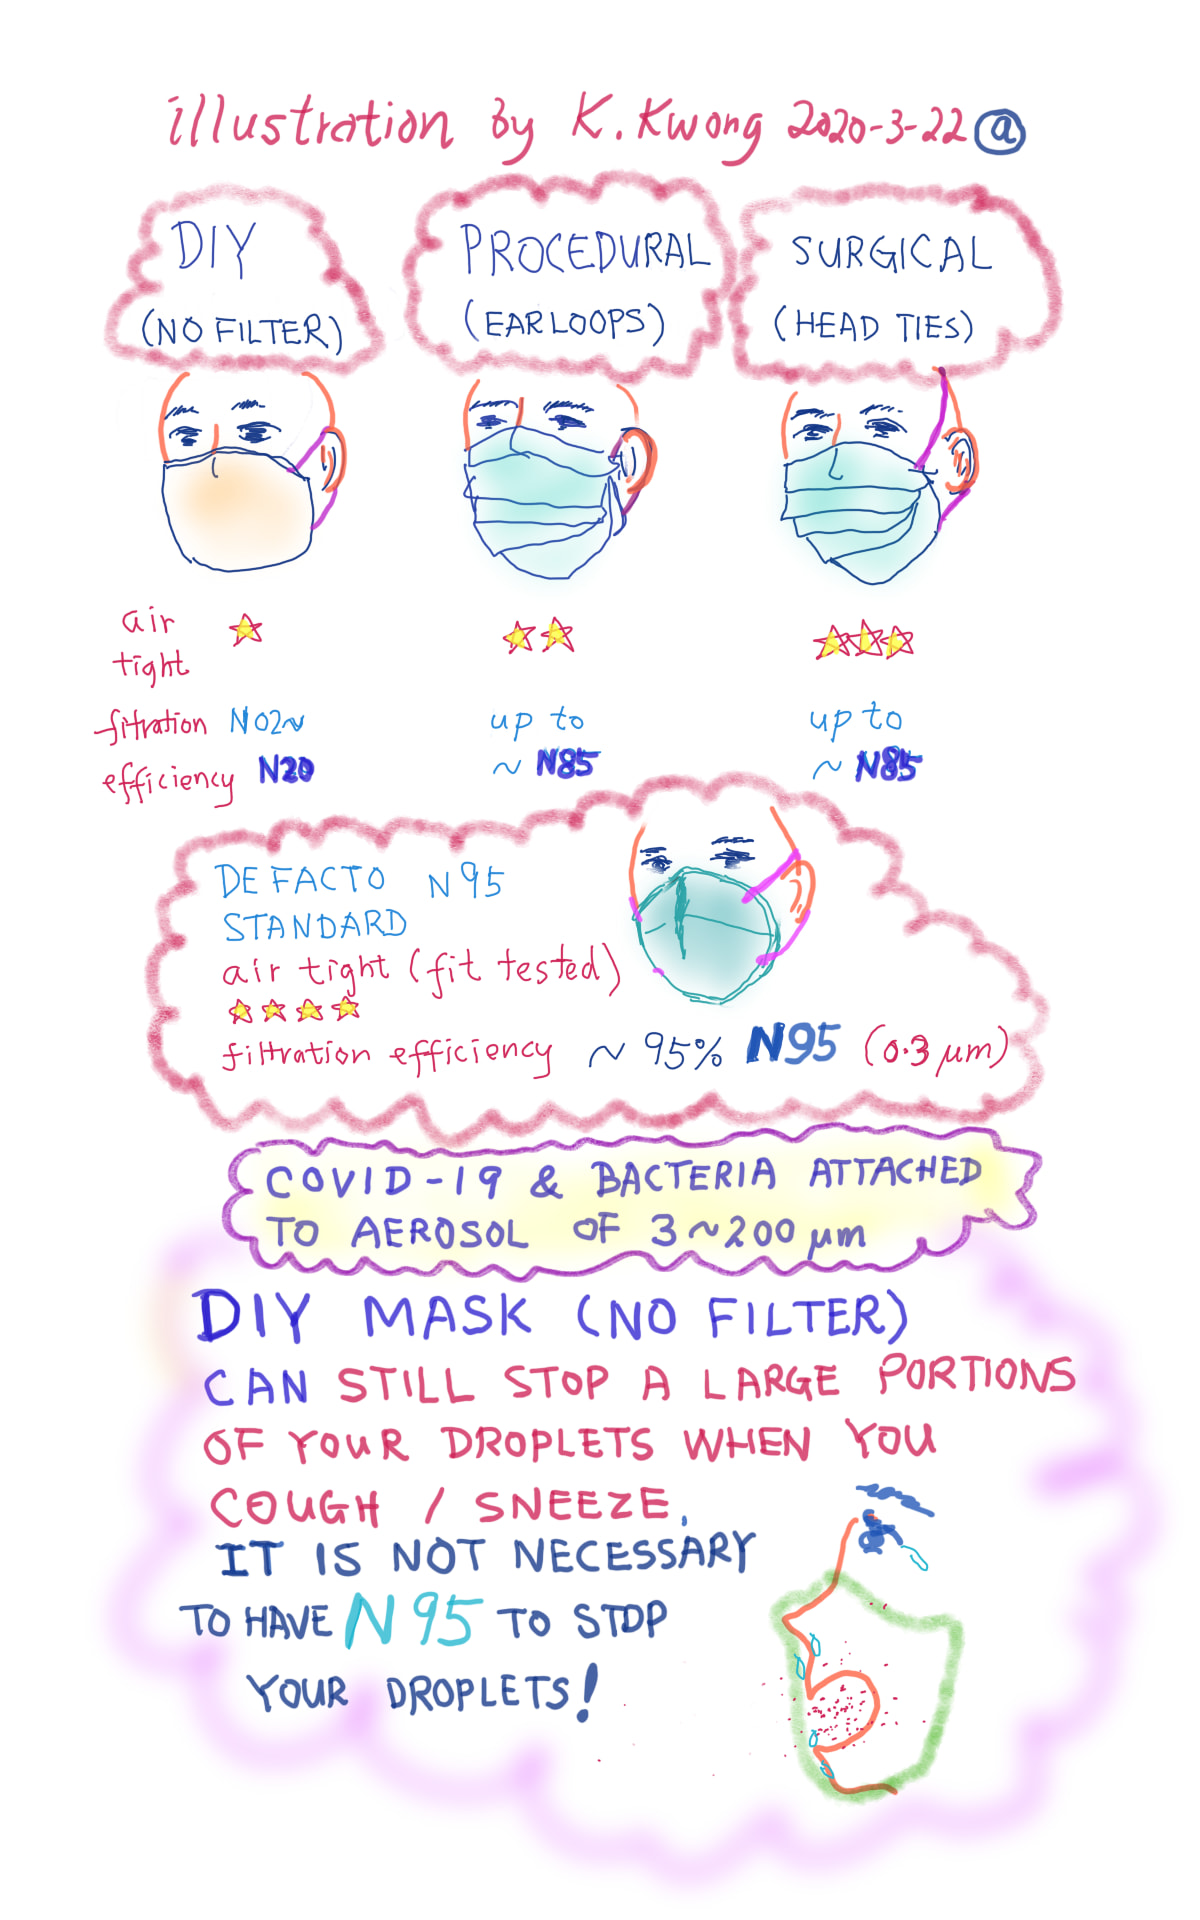 illustration by K. Kwong 2020-3-22 @
DIY
(NO FILTER)
PROCEDURAL
(EAR LOOPS)
SURGICAL
(HEAD TIES)
air
tight
fitration N02~
efficiency N20
up to
~ N85
up to
~ N85
DEFACTO N95
STANDARD
air tight (fit tested)
filtration efficiency ~ 95% N95 (0.3 μm)
COVID-19 & BACTERIA ATTACHED
TO AEROSOL OF 3~200 μm
DIY MASK (NO FILTER)
CAN STILL STOP A LARGE PORTIONS
OF YOUR DROPLETS WHEN YOU
COUGH / SNEEZE.
IT IS NOT NECESSARY
TO HAVE N95 TO STOP
YOUR DROPLETS!